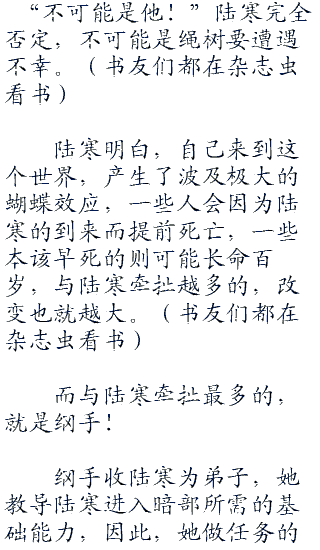 “不可能是他！”陆寒完全
否定，不可能是绳树要遭遇
不幸。（书友们都在杂志虫
看书）
陆寒明白，自己来到这
个世界，产生了波及极大的
蝴蝶效应，一些人会因为陆
寒的到来而提前死亡，一些
本该早死的则可能长命百
岁，与陆寒牵扯越多的，改
变也就越大。（书友们都在
杂志虫看书）
而与陆寒牵扯最多的，
就是纲手！
纲手收陆寒为弟子，她
教导陆寒进入暗部所需的基
础能力，因此，她做任务的